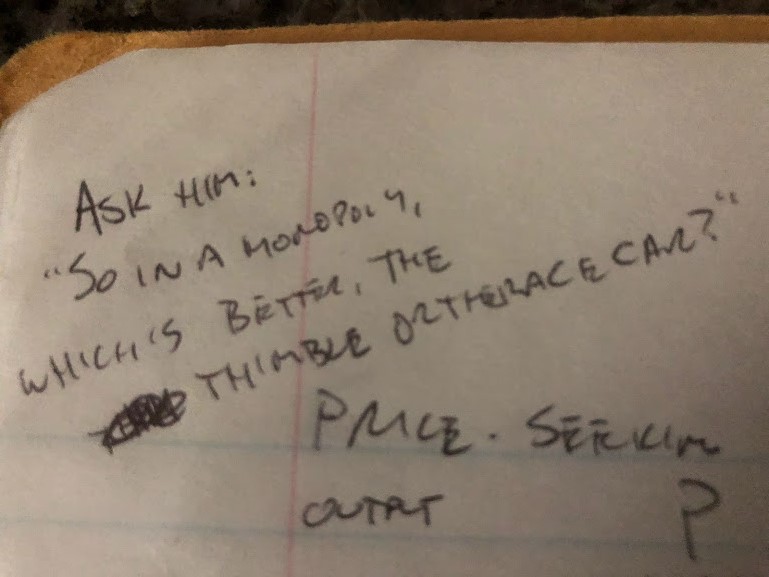 ASK HIM:
"SO IN A MONOPOLY,
WHICH'S BETTER, THE
THIMBLE OR THE RACE CAR?"
PRICE - SEEKING
OUTPT P